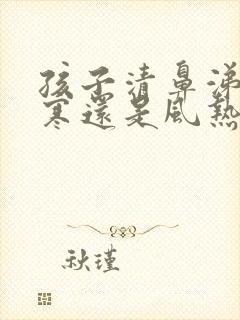 孩子清鼻涕
寒還是風熱
秋瑾